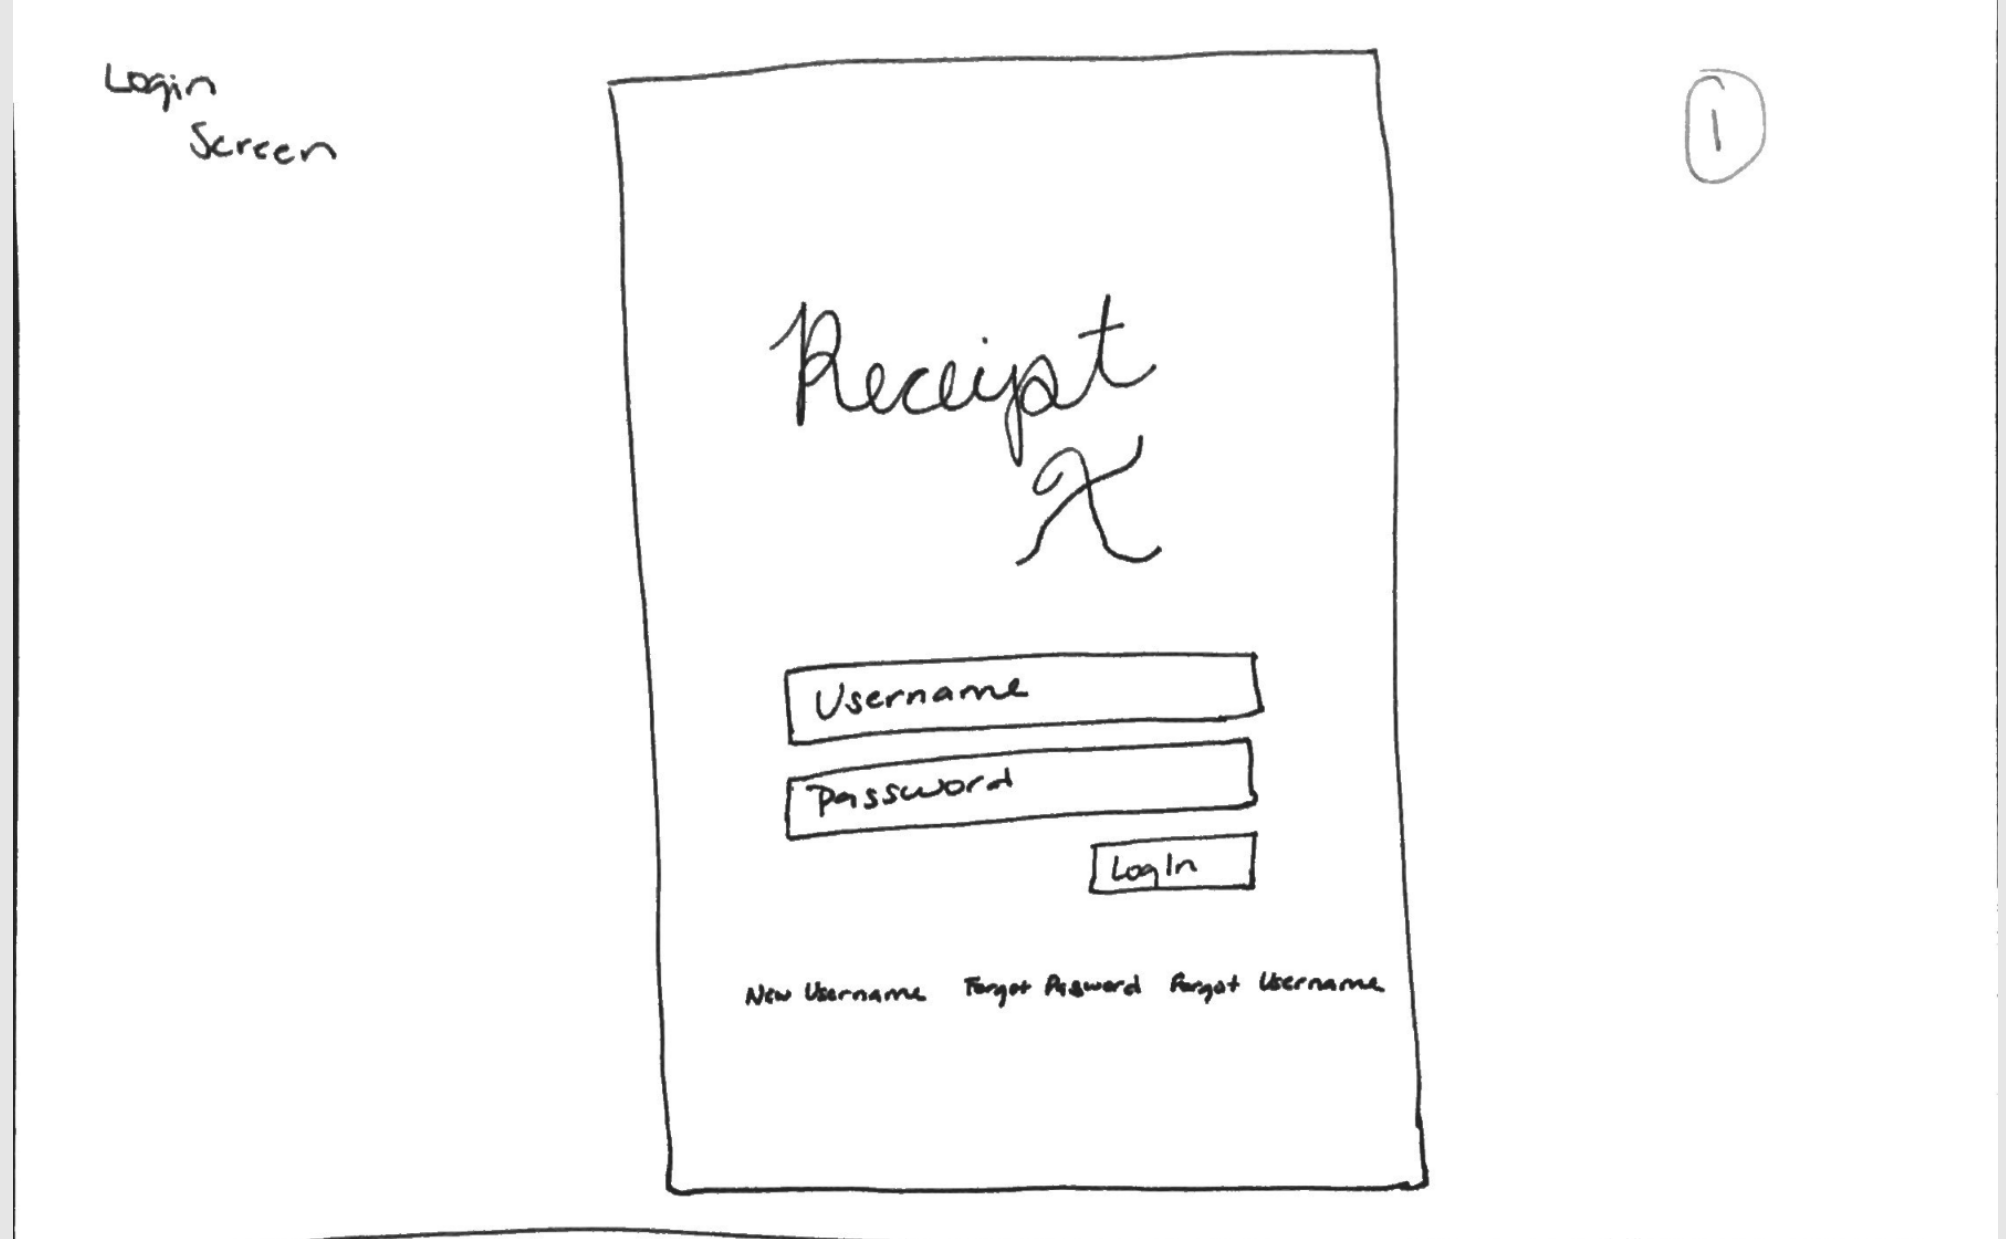 Login
Screen
1
Receipt
X
Username
Password
LogIn
New Username Forgot Password Forgot Username